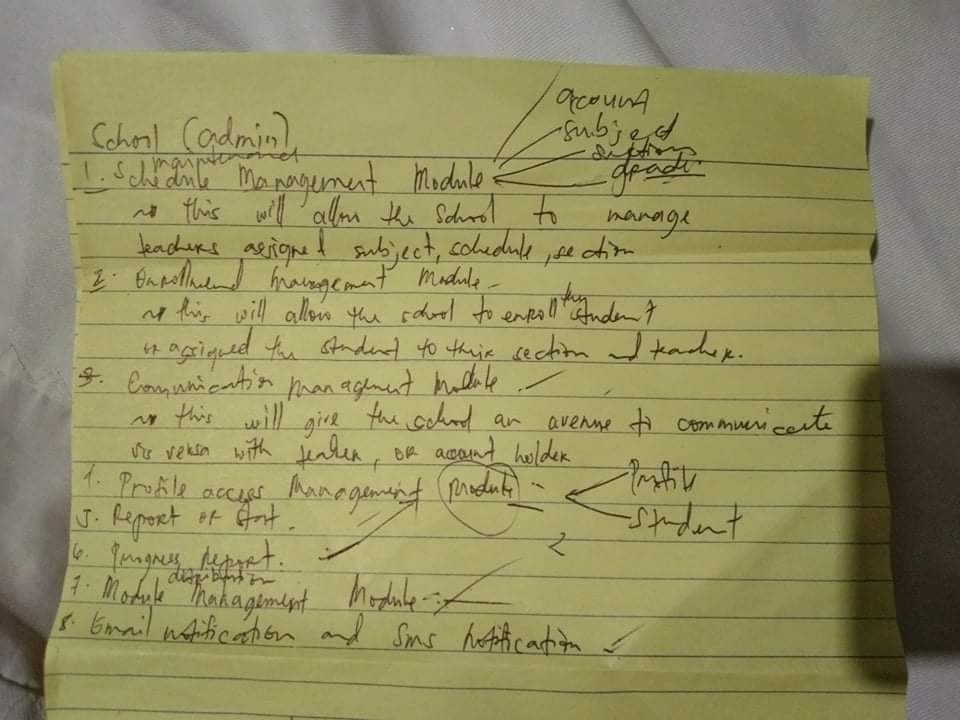 account
School (admin)
subject
maintenance
section
1. Schedule Management Module
grade
this will allow the School to manage
teachers assigned subject, schedule, section
2. Enrollment Management Module -
this will allow the school to enroll the student
or assigned the student to their section and teacher.
3. Communication Management Module
this will give the school an avenue to communicate
vis versa with teacher, or account holder
4. Profile access Management Module -
Profile
5. Report or Stat.
Student
6. Progress Report.
distribution
7. Module Management Module -
8. Email notification and Sms Notification